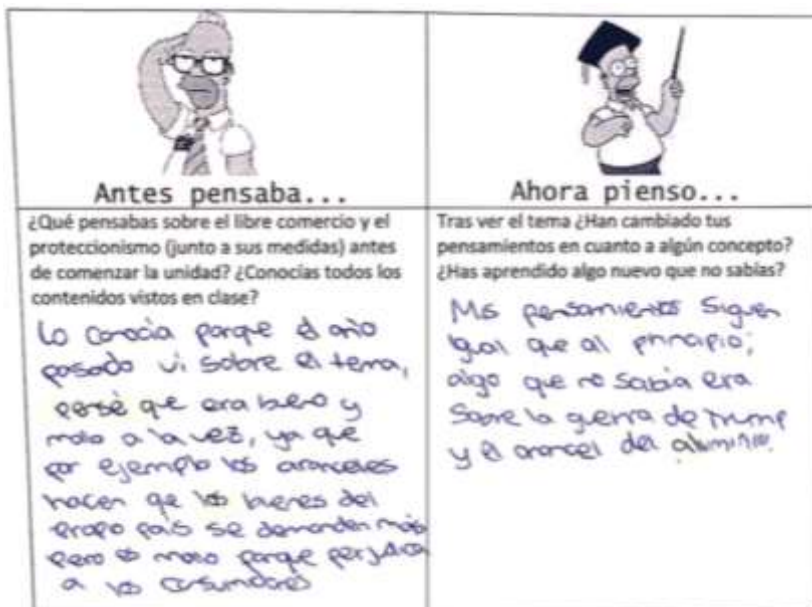 Antes pensaba...
¿Qué pensabas sobre el libre comercio y el
proteccionismo (junto a sus medidas) antes
de comenzar la unidad? ¿Conocías todos los
contenidos vistos en clase?
Lo conocía porque el año
pasado vi sobre el tema,
pensé que era bueno y
malo a la vez, ya que
por ejemplo los aranceles
hacen que los bienes del
propio país se demanden más
pero es malo porque perjudica
a los consumidores
Ahora pienso...
Tras ver el tema ¿Han cambiado tus
pensamientos en cuanto a algún concepto?
¿Has aprendido algo nuevo que no sabías?
Mis pensamientos siguen
igual que al principio;
algo que no sabía era
sobre la guerra de Trump
y el arancel del aluminio.